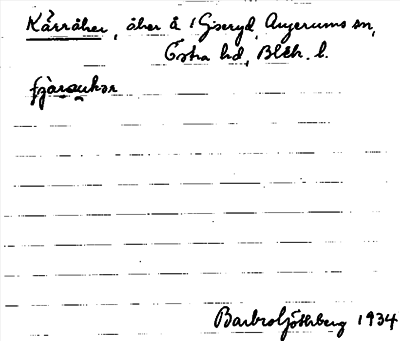 ?
Kärråker, åker å ¹/Giseryd, Augerums sn,
Östra hd, Blek. l.
fjäraukar
Barbro Göthberg 1934